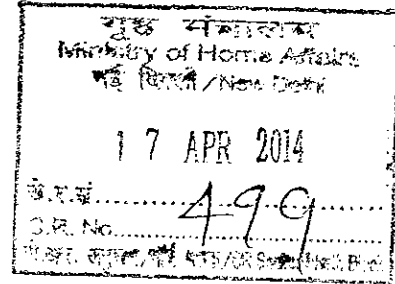 गृह मंत्रालय
Ministry of Home Affairs
नई दिल्ली/New Delhi
17 APR 2014
के.र.सं.......... 499
C.R. No..........